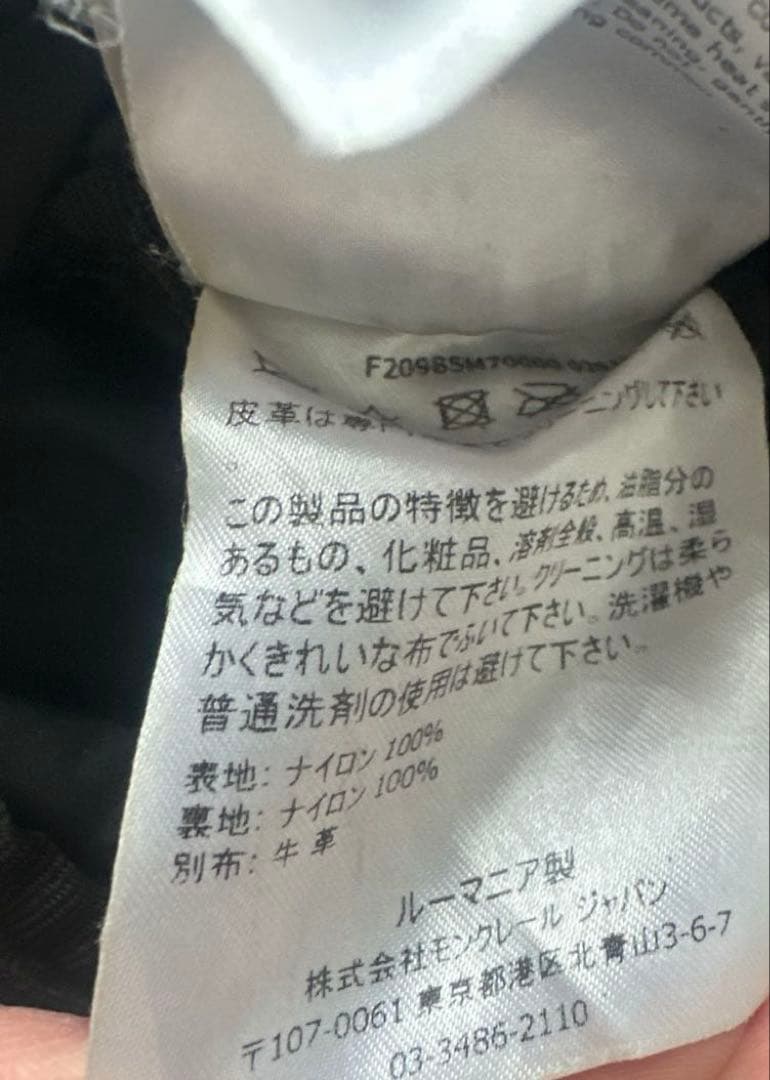 ucts,
same heat
F2098SM70000
皮革は専
ニングして下さい
。
この製品の特徴を避けるため、油脂分の
あるもの、化粧品、溶剤全般、高温、湿
気などを避けて下さい。クリーニングは柔ら
かくきれいな布でふいて下さい。洗濯機や
普通洗剤の使用は避けて下さい。
表地: ナイロン 100%
裏地: ナイロン 100%
別布: 牛革
ルーマニア製
株式会社モンクレール ジャパン
〒107-0061 東京都港区北青山3-6-7
03-3486-2110